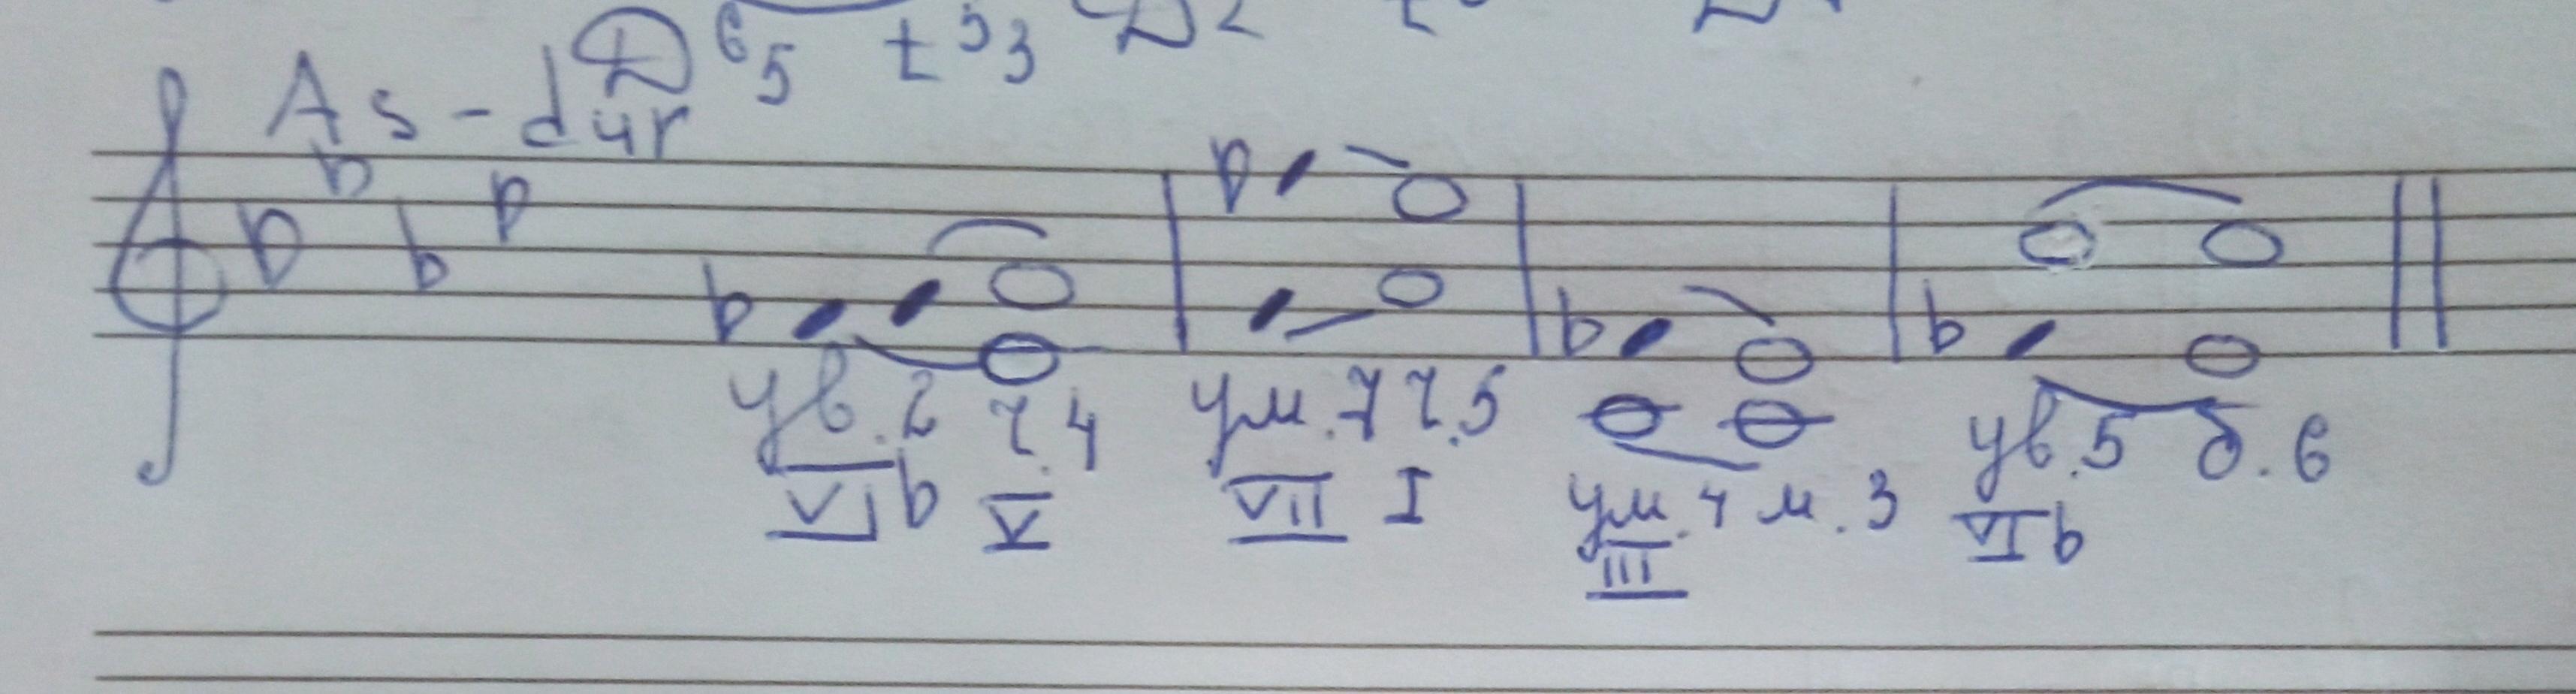 D⁶₅ t⁵₃ D₂
As-dur
ув.2 ч.4 ум.7 ч.5 ум.4 м.3 ув.5 б.6
VIb V VII I III VIb